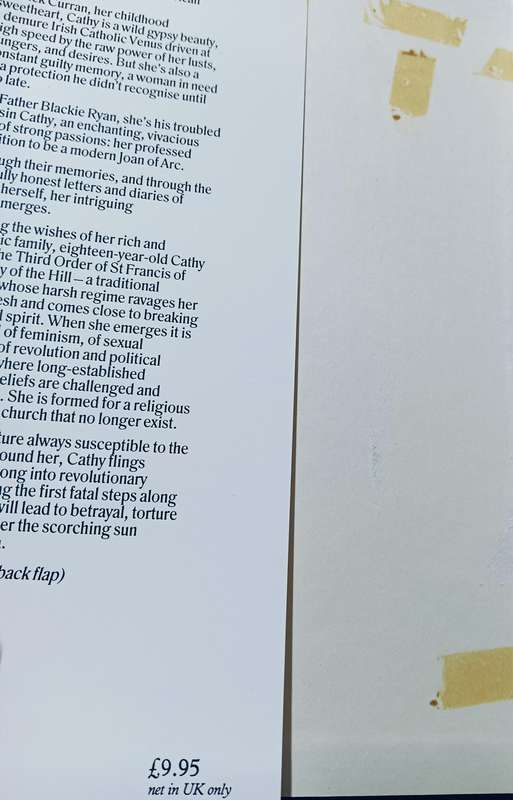 Curran, her childhood
sweetheart, Cathy is a wild gypsy beauty,
demure Irish Catholic Venus driven at
igh speed by the raw power of her lusts,
ungers, and desires. But she's also a
onstant guilty memory, a woman in need
a protection he didn't recognise until
late.
Father Blackie Ryan, she's his troubled
sin Cathy, an enchanting, vivacious
of strong passions: her professed
ition to be a modern Joan of Arc.
ugh their memories, and through the
ully honest letters and diaries of
herself, her intriguing
merges.
g the wishes of her rich and
ic family, eighteen-year-old Cathy
he Third Order of St Francis of
y of the Hill – a traditional
whose harsh regime ravages her
esh and comes close to breaking
l spirit. When she emerges it is
of feminism, of sexual
of revolution and political
where long-established
eliefs are challenged and
. She is formed for a religious
church that no longer exist.
ture always susceptible to the
ound her, Cathy flings
ong into revolutionary
ng the first fatal steps along
will lead to betrayal, torture
er the scorching sun
.
back flap)
£9.95
net in UK only